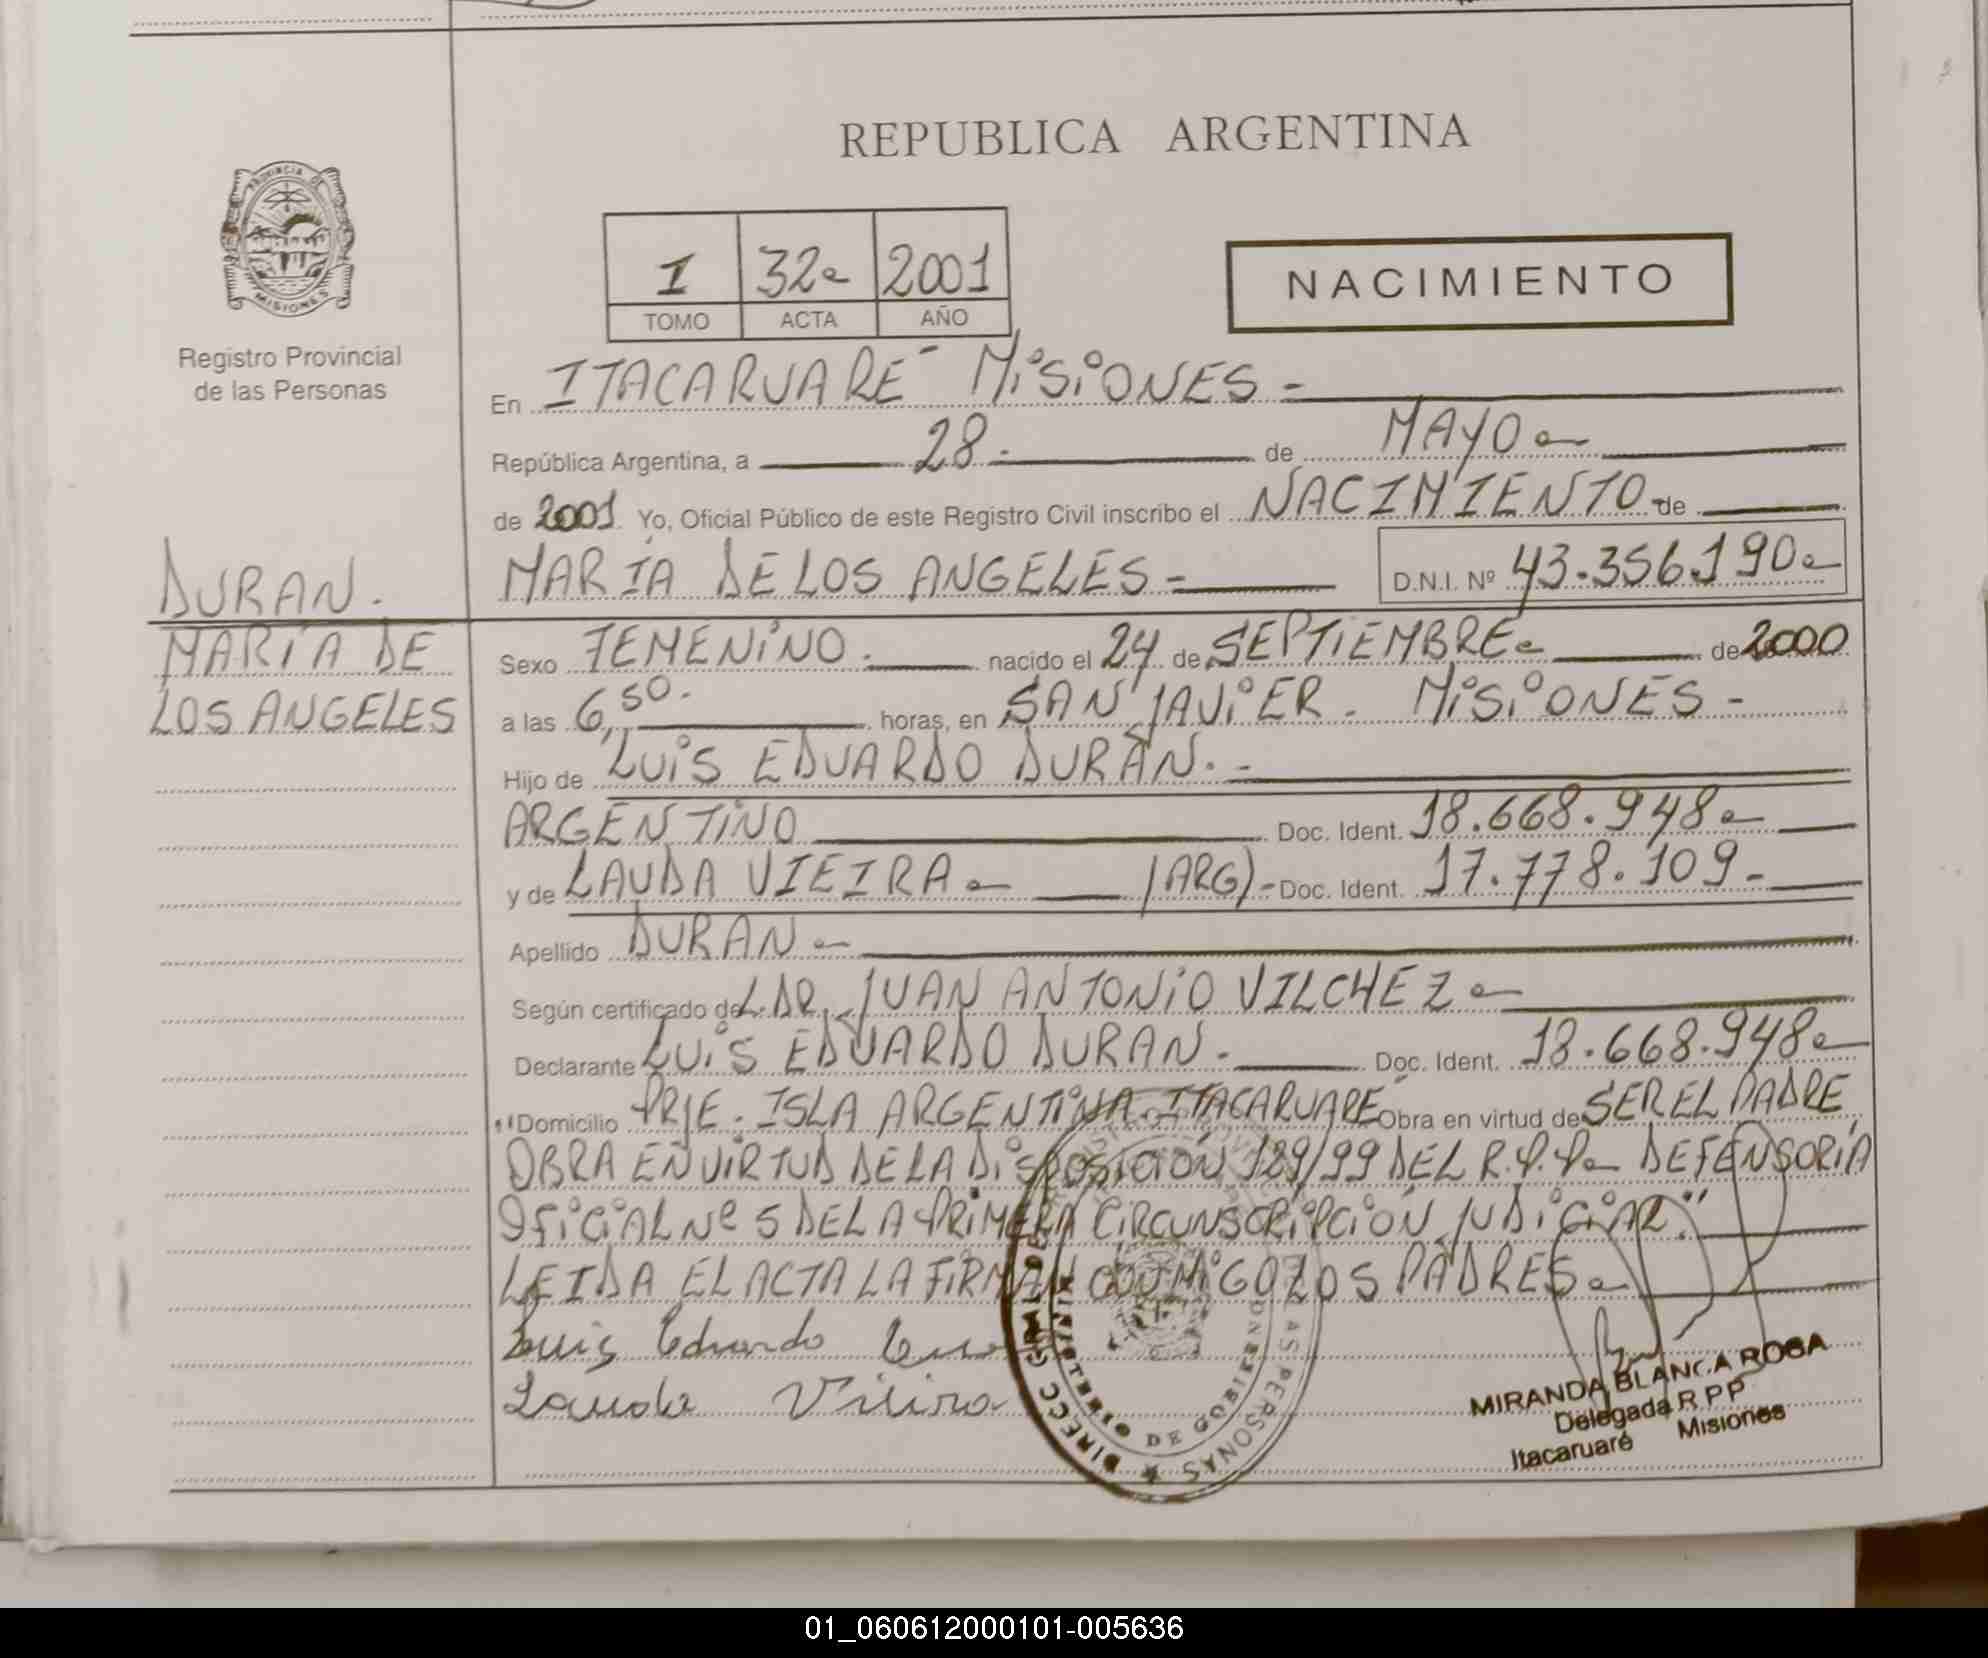 REPUBLICA ARGENTINA
PROVINCIA DE
MISIONES
Registro Provincial
de las Personas
I 32 2001
TOMO ACTA AÑO
NACIMIENTO
En ITACARUARÉ MISIONES -
República Argentina, a 28 - de MAYO
de 2001 Yo, Oficial Público de este Registro Civil inscribo el NACIMIENTO de
MARÍA DE LOS ANGELES - D.N.I. Nº 43.356.190
DURAN.
MARÍA DE
LOS ANGELES
Sexo FEMENINO. nacido el 24 de SEPTIEMBRE de 2000
a las 6,50. horas, en SAN JAVIER. MISIONES -
Hijo de LUIS EDUARDO DURAN. -
ARGENTINO Doc. Ident. 18.668.948
y de LAUDA VIEIRA (ARG) - Doc. Ident. 17.778.109 -
Apellido DURAN
Según certificado de L. DR. JUAN ANTONIO VILCHEZ
Declarante LUIS EDUARDO DURAN. Doc. Ident. 18.668.948
"Domicilio PJE. ISLA ARGENTINA. ITACARUARÉ Obra en virtud de SER EL PADRE
OBRA EN VIRTUD DE LA DISPOSICIÓN 129/99 DEL R.P.P. DEFENSORÍA
OFICIAL Nº 5 DE LA PRIMERA CIRCUNSCRIPCIÓN JUDICIAL."
LEIDA EL ACTA LA FIRMAN CONMIGO LOS PADRES
Luis Eduardo
Lauda Vieira
DIRECC GRAL DE
LAS PERSONAS
MINISTERIO DE GOBIERNO
MIRANDA BLANCA ROSA
Delegada R P P
Itacaruaré Misiones
01_060612000101-005636